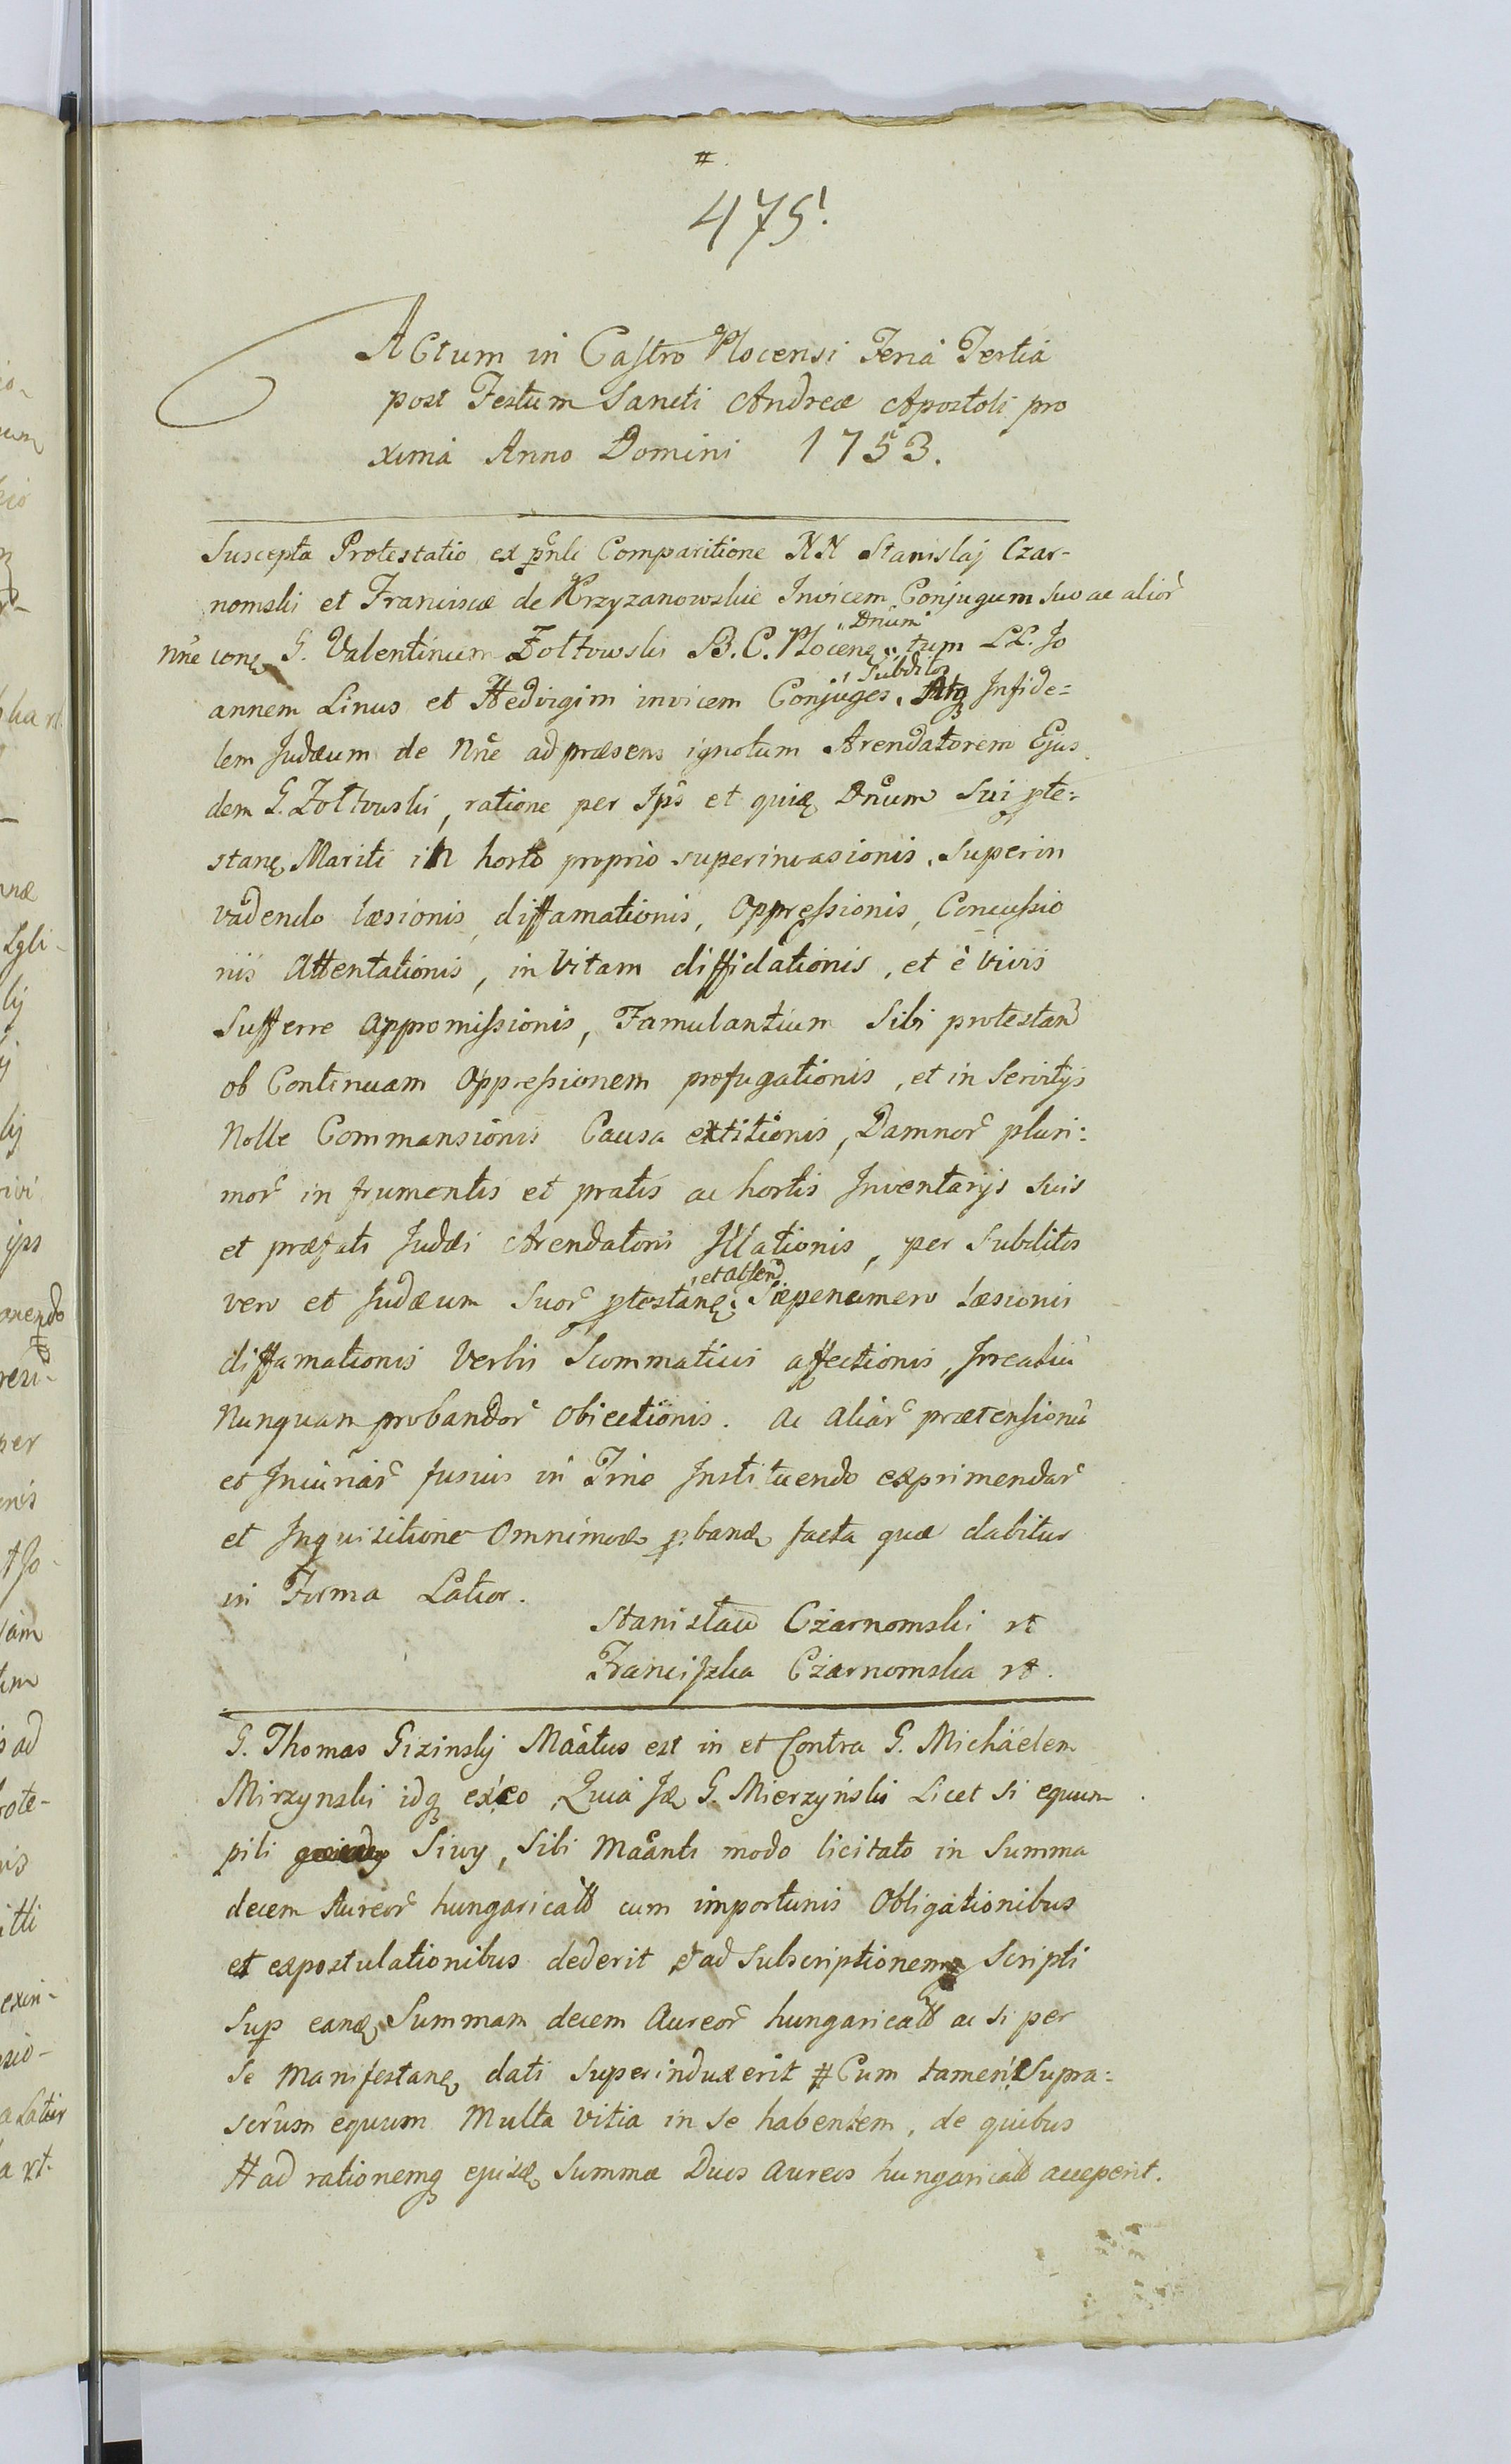 #
475.
Actum in Castro Plocensi Feria Tertia
post Festum Sancti Andreæ Apostoli pro
xima Anno Domini 1753.
Suscepta Protestatio ex pñli Comparitione NN Stanislaj Czar-
nomski et Franciscæ de Krzyzanowskie Invicem Conjugum suo ac alior
nne cone G. Valentinum Zołtowski B. C. Plocens Dnum tum LL. Jo
annem Linus et Hedvigim invicem Conjuges Subditos Atq Infide=
lem Judæum de Nne ad præsens ignotum Arendatorem Ejus
dem G. Zołtowski, ratione per Ips et quidē Dnum sui pte=
stanē Mariti in horto proprio superinvasionis, superin
vadendo læsionis, diffamationis, Oppressionis, Concussio
nis Attentationis, in Vitam diffidationis, et è vivis
Sufferre appromissionis, Famulantium Sibi protestan
ob Continuam Oppressionem profugationis, et in servitijs
Nolle Commansionis Causa extitionis, Damnor pluri=
mor in frumentis et pratis ac hortis Inventarijs suis
et præfati Judæi Arendatoris Illationis, per Subditos
vero et Judæum Suor ptestanē et absen Sæpenumero læsionis
diffamationis Verbis Scommaticis affectionis, Irreatuu
Nunquam probandor Obiectionis. Ac aliar prætensionu
et Iniuriar fusius in Trno Instituendo exprimendar
et Inquisitione Omnimode pbandē facta quæ dabitur
in Forma Latior.
Stanisław Czarnomski rt
Franciszka Czarnomska rt.
G. Thomas Gizinskj Maatus est in et Contra G. Michäelem
Mirzynski idq ex eo Quia Id G. Mierzyński Licet si equum
pili Siwy, Sibi Maanti modo licitato in Summa
decem Aureor hungaricall cum importunis Obligationibus
et expostulationibus dederit et ad subscriptionemq Scripti
Sup eandē Summam decem Aureor hungaricall ac si per
se Manifestanē dati superinduxerit # Cum tamen Supra=
scrum equum Multa vitia in se habentem, de quibus
# ad rationemq ejusdē Summæ Duos Aureos hungaricall acceperit.